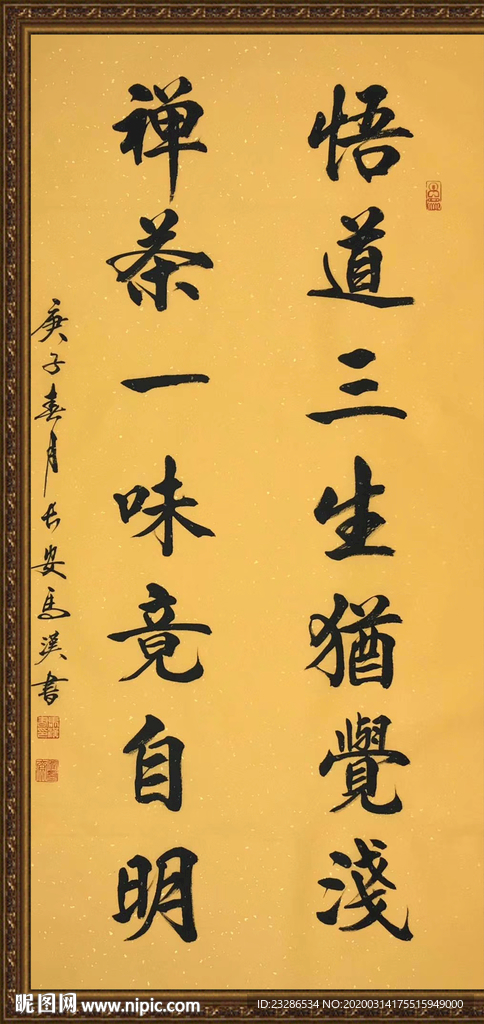 悟道三生猶覺淺
禅茶一味竟自明
庚子春月长安馬漢書
昵图网 www.nipic.com
ID:23286534 NO:20200314175515949000